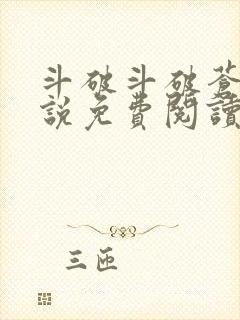 斗破斗破蒼
說免費閱讀
三匝